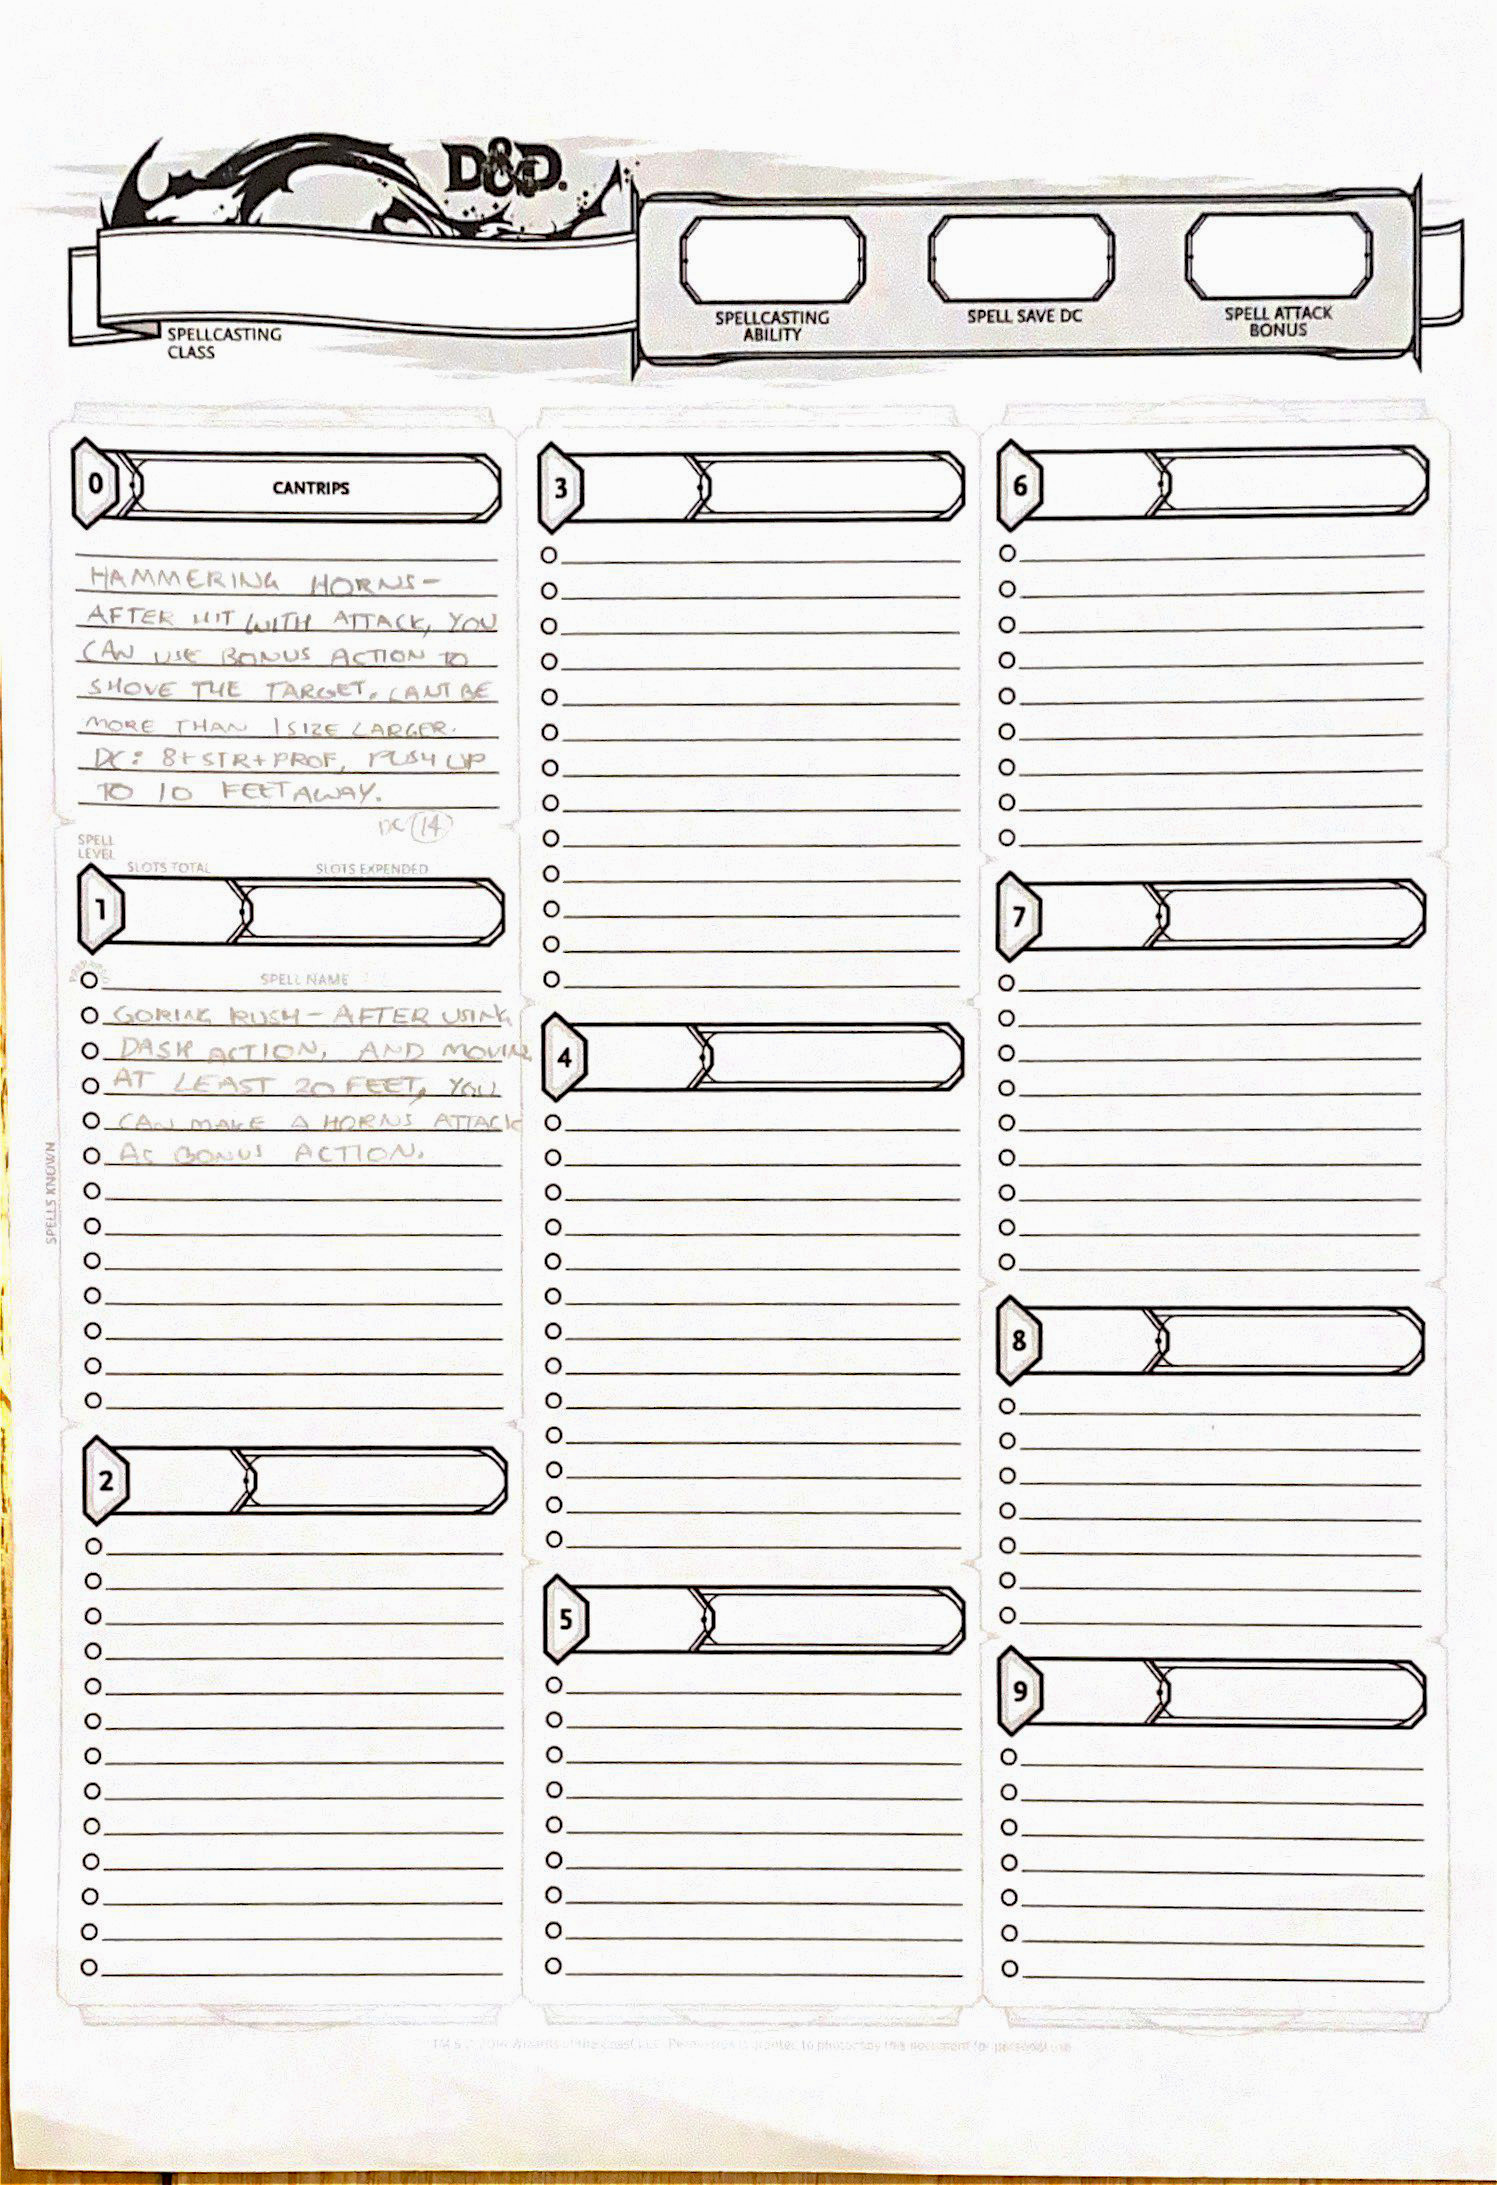 D&D
SPELLCASTING
CLASS
SPELLCASTING
ABILITY
SPELL SAVE DC
SPELL ATTACK
BONUS
0
CANTRIPS
HAMMERING HORNS-
AFTER HIT WITH ATTACK, YOU
CAN USE BONUS ACTION TO
SHOVE THE TARGET. CANT BE
MORE THAN 1 SIZE LARGER.
DC: 8+STR+PROF, PUSH UP
TO 10 FEET AWAY.
DC 14
SPELL
LEVEL
SLOTS TOTAL
SLOTS EXPENDED
1
SPELL NAME
GORING RUSH - AFTER USING
DASH ACTION, AND MOVING
AT LEAST 20 FEET, YOU
CAN MAKE A HORNS ATTACK
AS BONUS ACTION.
SPELLS KNOWN
2
3
4
5
6
7
8
9
Permission is granted to photocopy this document for personal use.